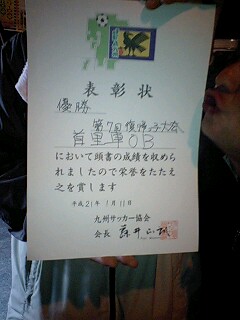 表彰状
優勝
第7回復帰っ子大会
首里軍OB
において頭書の成績を収めら
れましたので栄誉をたたえ
之を賞します
平成21年1月11日
九州サッカー協会
会長